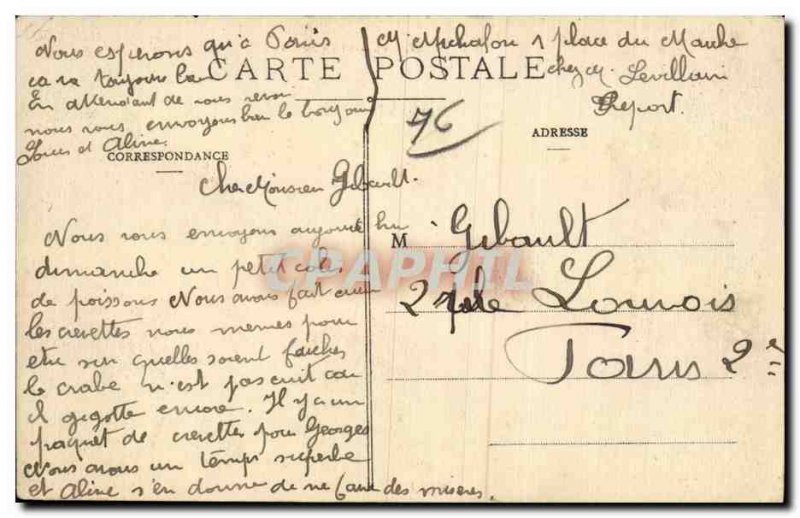 Nous esperons qu'a Paris
ca va toujours bien
En attendant de vous revoir
nous vous envoyons bien le bonjour
Louis et Aline
M. Michalon 1 place du Marche
chez M. Levillain
Treport.
CARTE POSTALE
76
CORRESPONDANCE
ADRESSE
Cher Monsieur Gibault.
Nous vous envoyons aujourd'hui
dimanche un petit colis
de poissons Nous avons fait cuire
les crevettes nous memes pour
etre sur quelles soient fraiches
le crabe n'est pas cuit car
il gigotte encore. Il y a un
paquet de crevettes pour Georges
Nous avons un temps superbe
et Aline s'en donne de me faire des miseres.
M Gibault
2 rue Louvois
Paris 2e
CPAPHIL